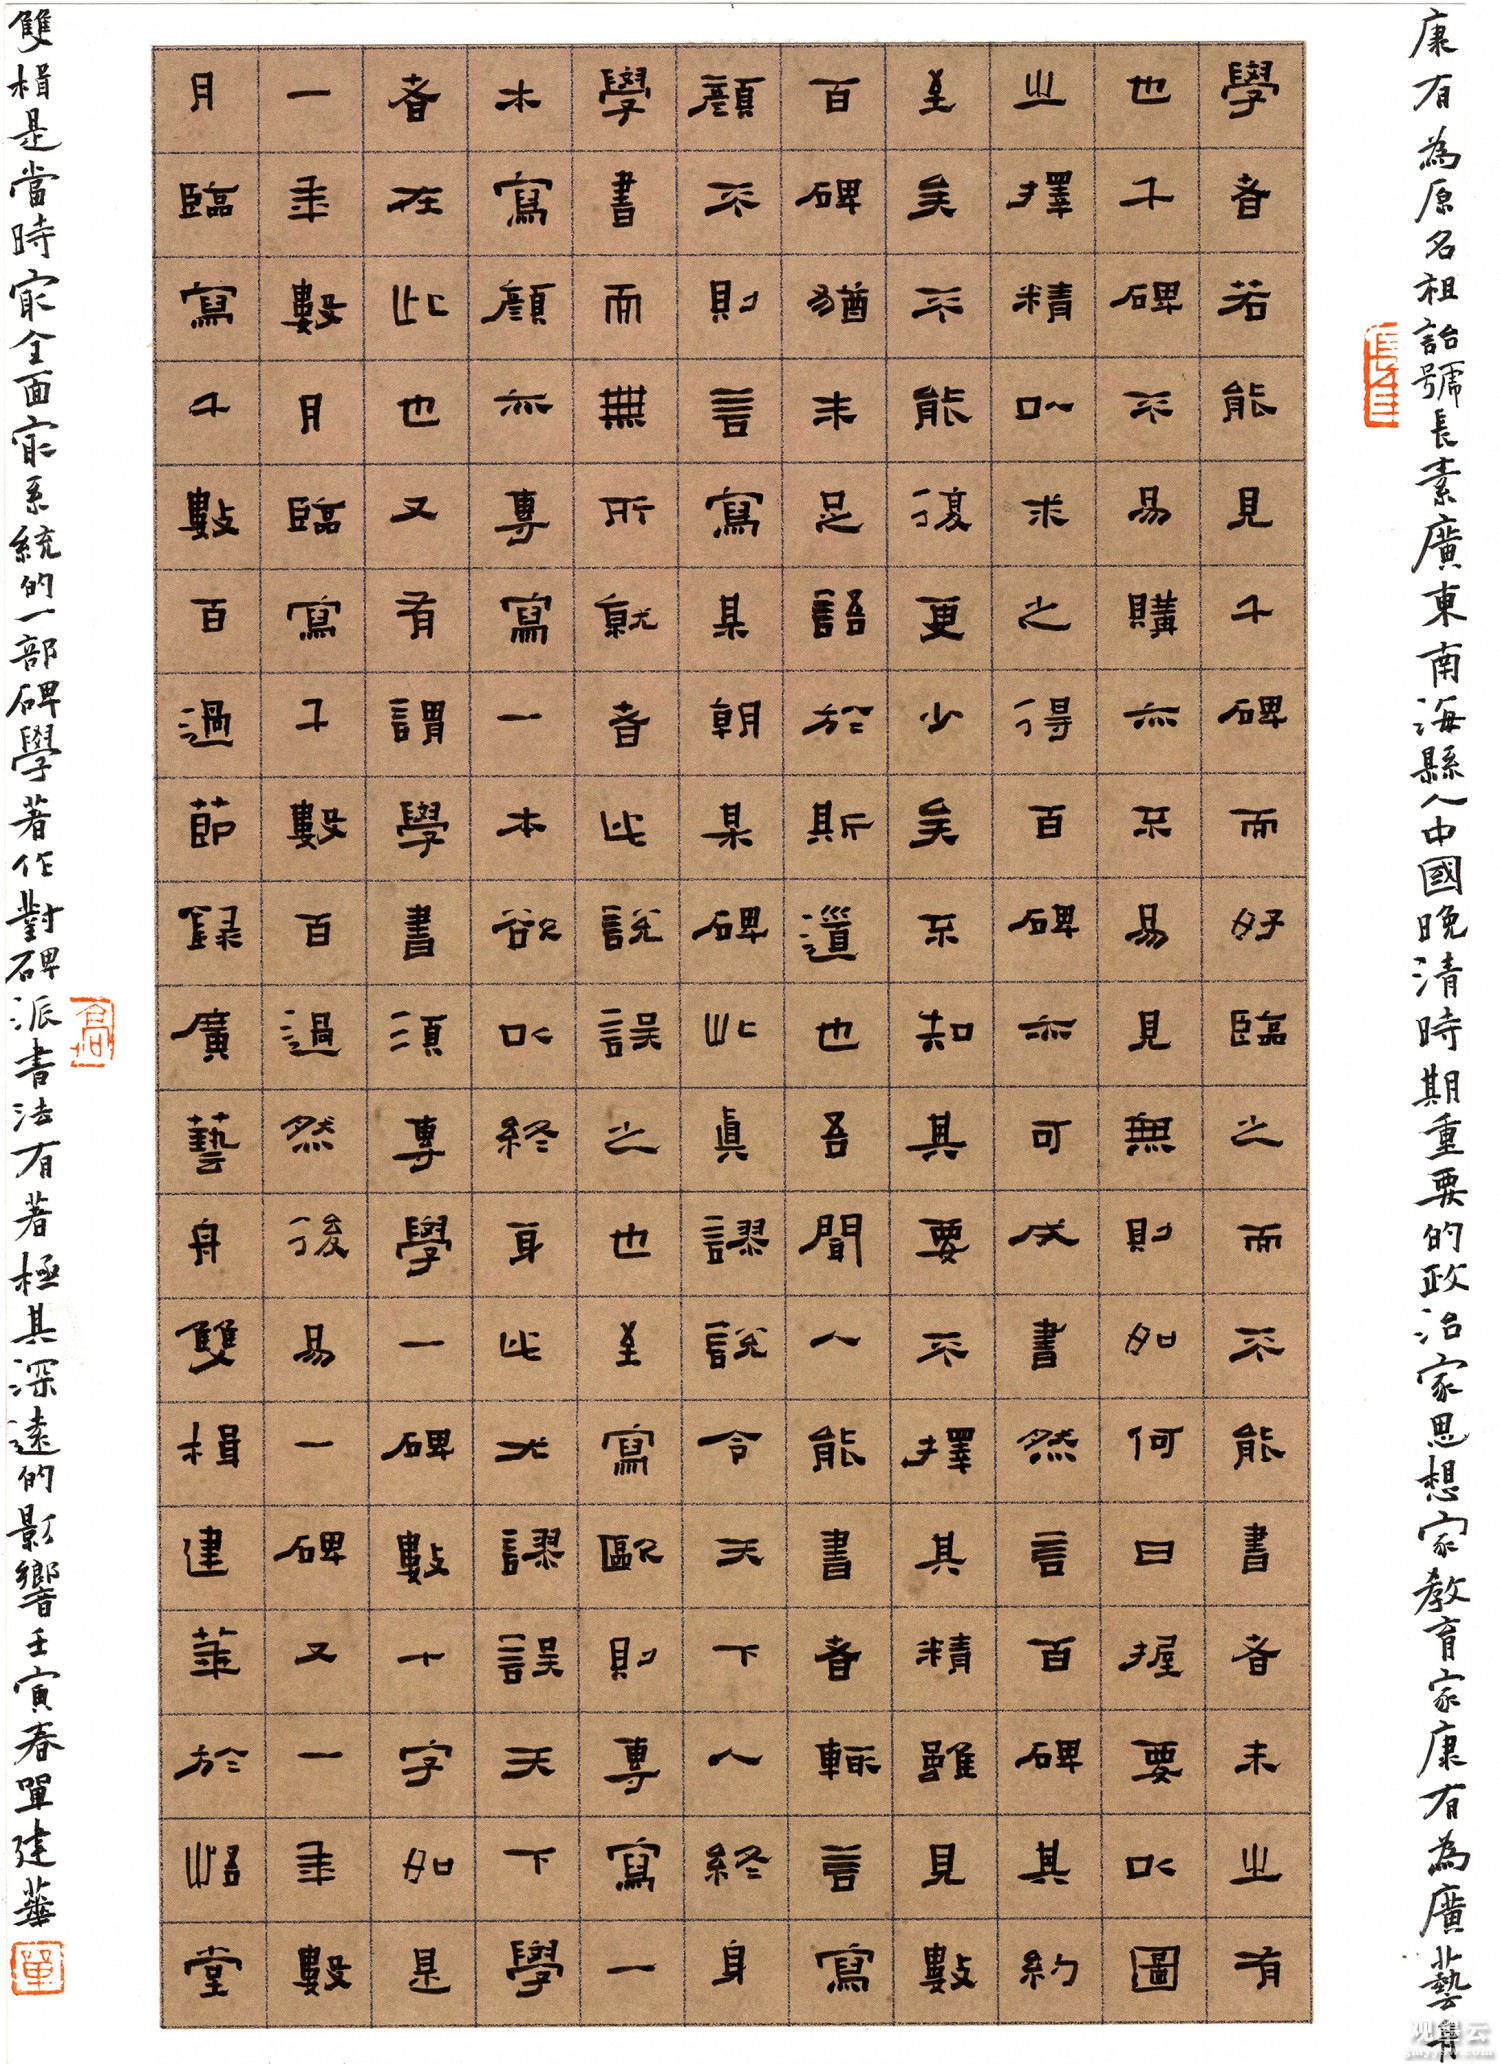 康有為原名祖詒號長素廣東南海縣人中國晚清時期重要的政治家思想家教育家康有為廣藝舟
學者若能見千碑而好臨之而不能書者未之有
也千碑不易購亦不易見無則如何曰握要以圖
之擇精以求之得百碑亦可成書然言百碑其約
至矣不能復更少矣不知其要不擇其精雖見數
百碑猶未足語於斯道也吾聞人能書者輒言寫
顏不則言寫某朝某碑此眞謬說令天下人終身
學書而無所就者此說誤之也至寫歐則專寫一
本寫顏亦專寫一本欲以終身此尤謬誤天下學
者在此也又有謂學書須專學一碑數十字如是
一年數月臨寫千數百過然後易一碑又一年數
月臨寫千數百過節錄廣藝舟雙楫建華於峿堂
雙楫是當時最全面最系統的一部碑學著作對碑派書法有著極其深遠的影響壬寅春單建華
單